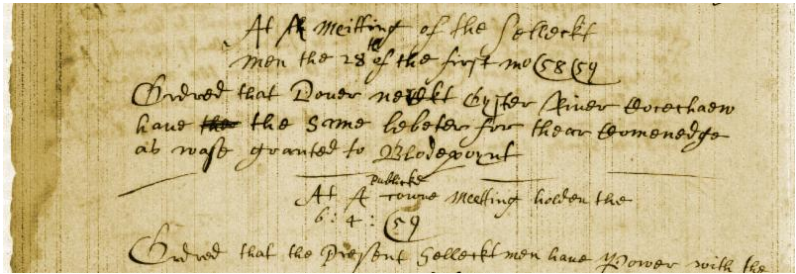 At A meitting of the Selleckt
men the 28th of the first mo (58 (59
Ordred that Dover Oyster River
have the the same lebeter for thear
as wase granted to Blodepoynt
publicke
At A towne Meetting holden the
6 : 4 : (59
Ordred that the Present Selleckt men have Power with the